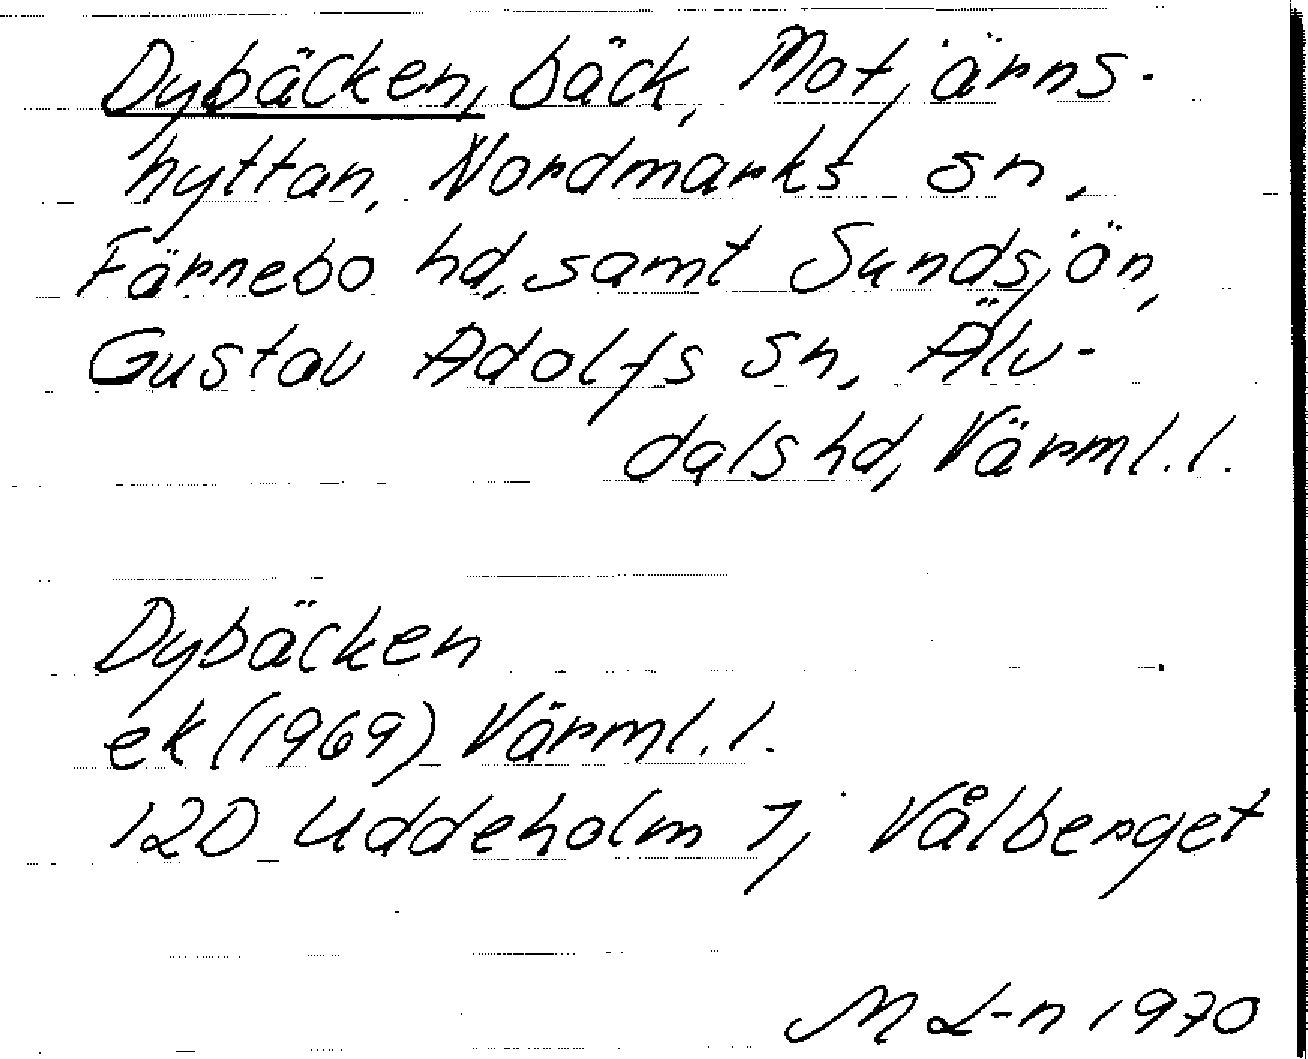 Dybäcken, bäck, Motjärns-
hyttan, Nordmarks sn,
Färnebo hd, samt Sundsjön,
Gustav Adolfs sn, Älv-
dals hd, Värml. l.
Dybäcken
ek (1969) Värml. l.
12D Uddeholm 7j Vålberget
M L-n 1970